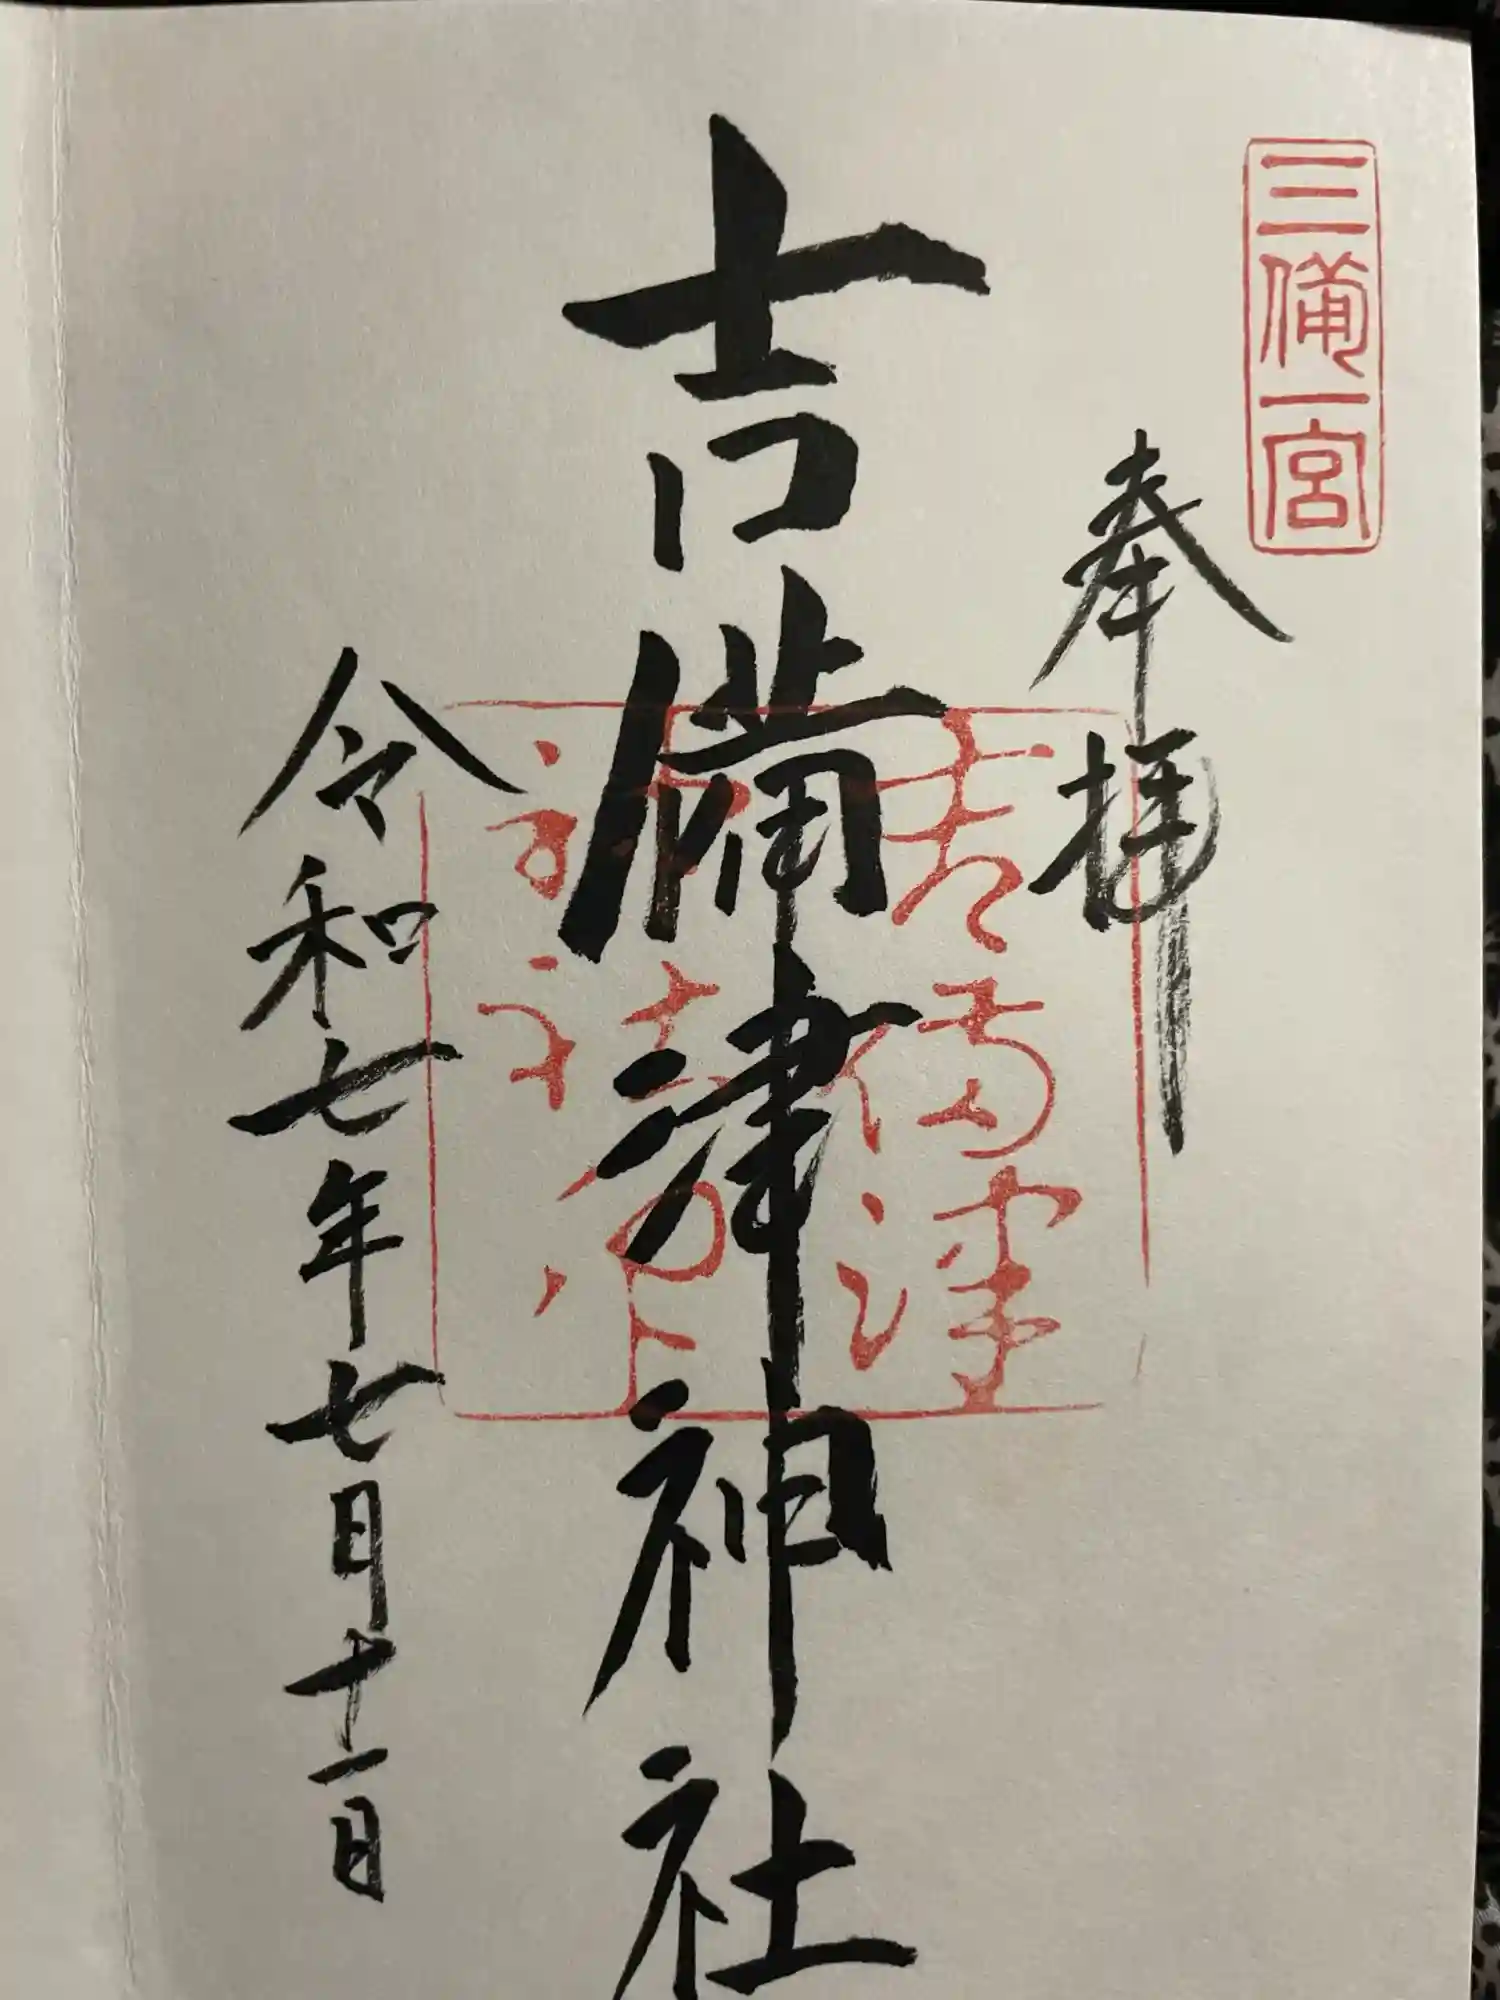 三備一宮
奉拝
吉備津神社
吉備津
令和七年七月十一日